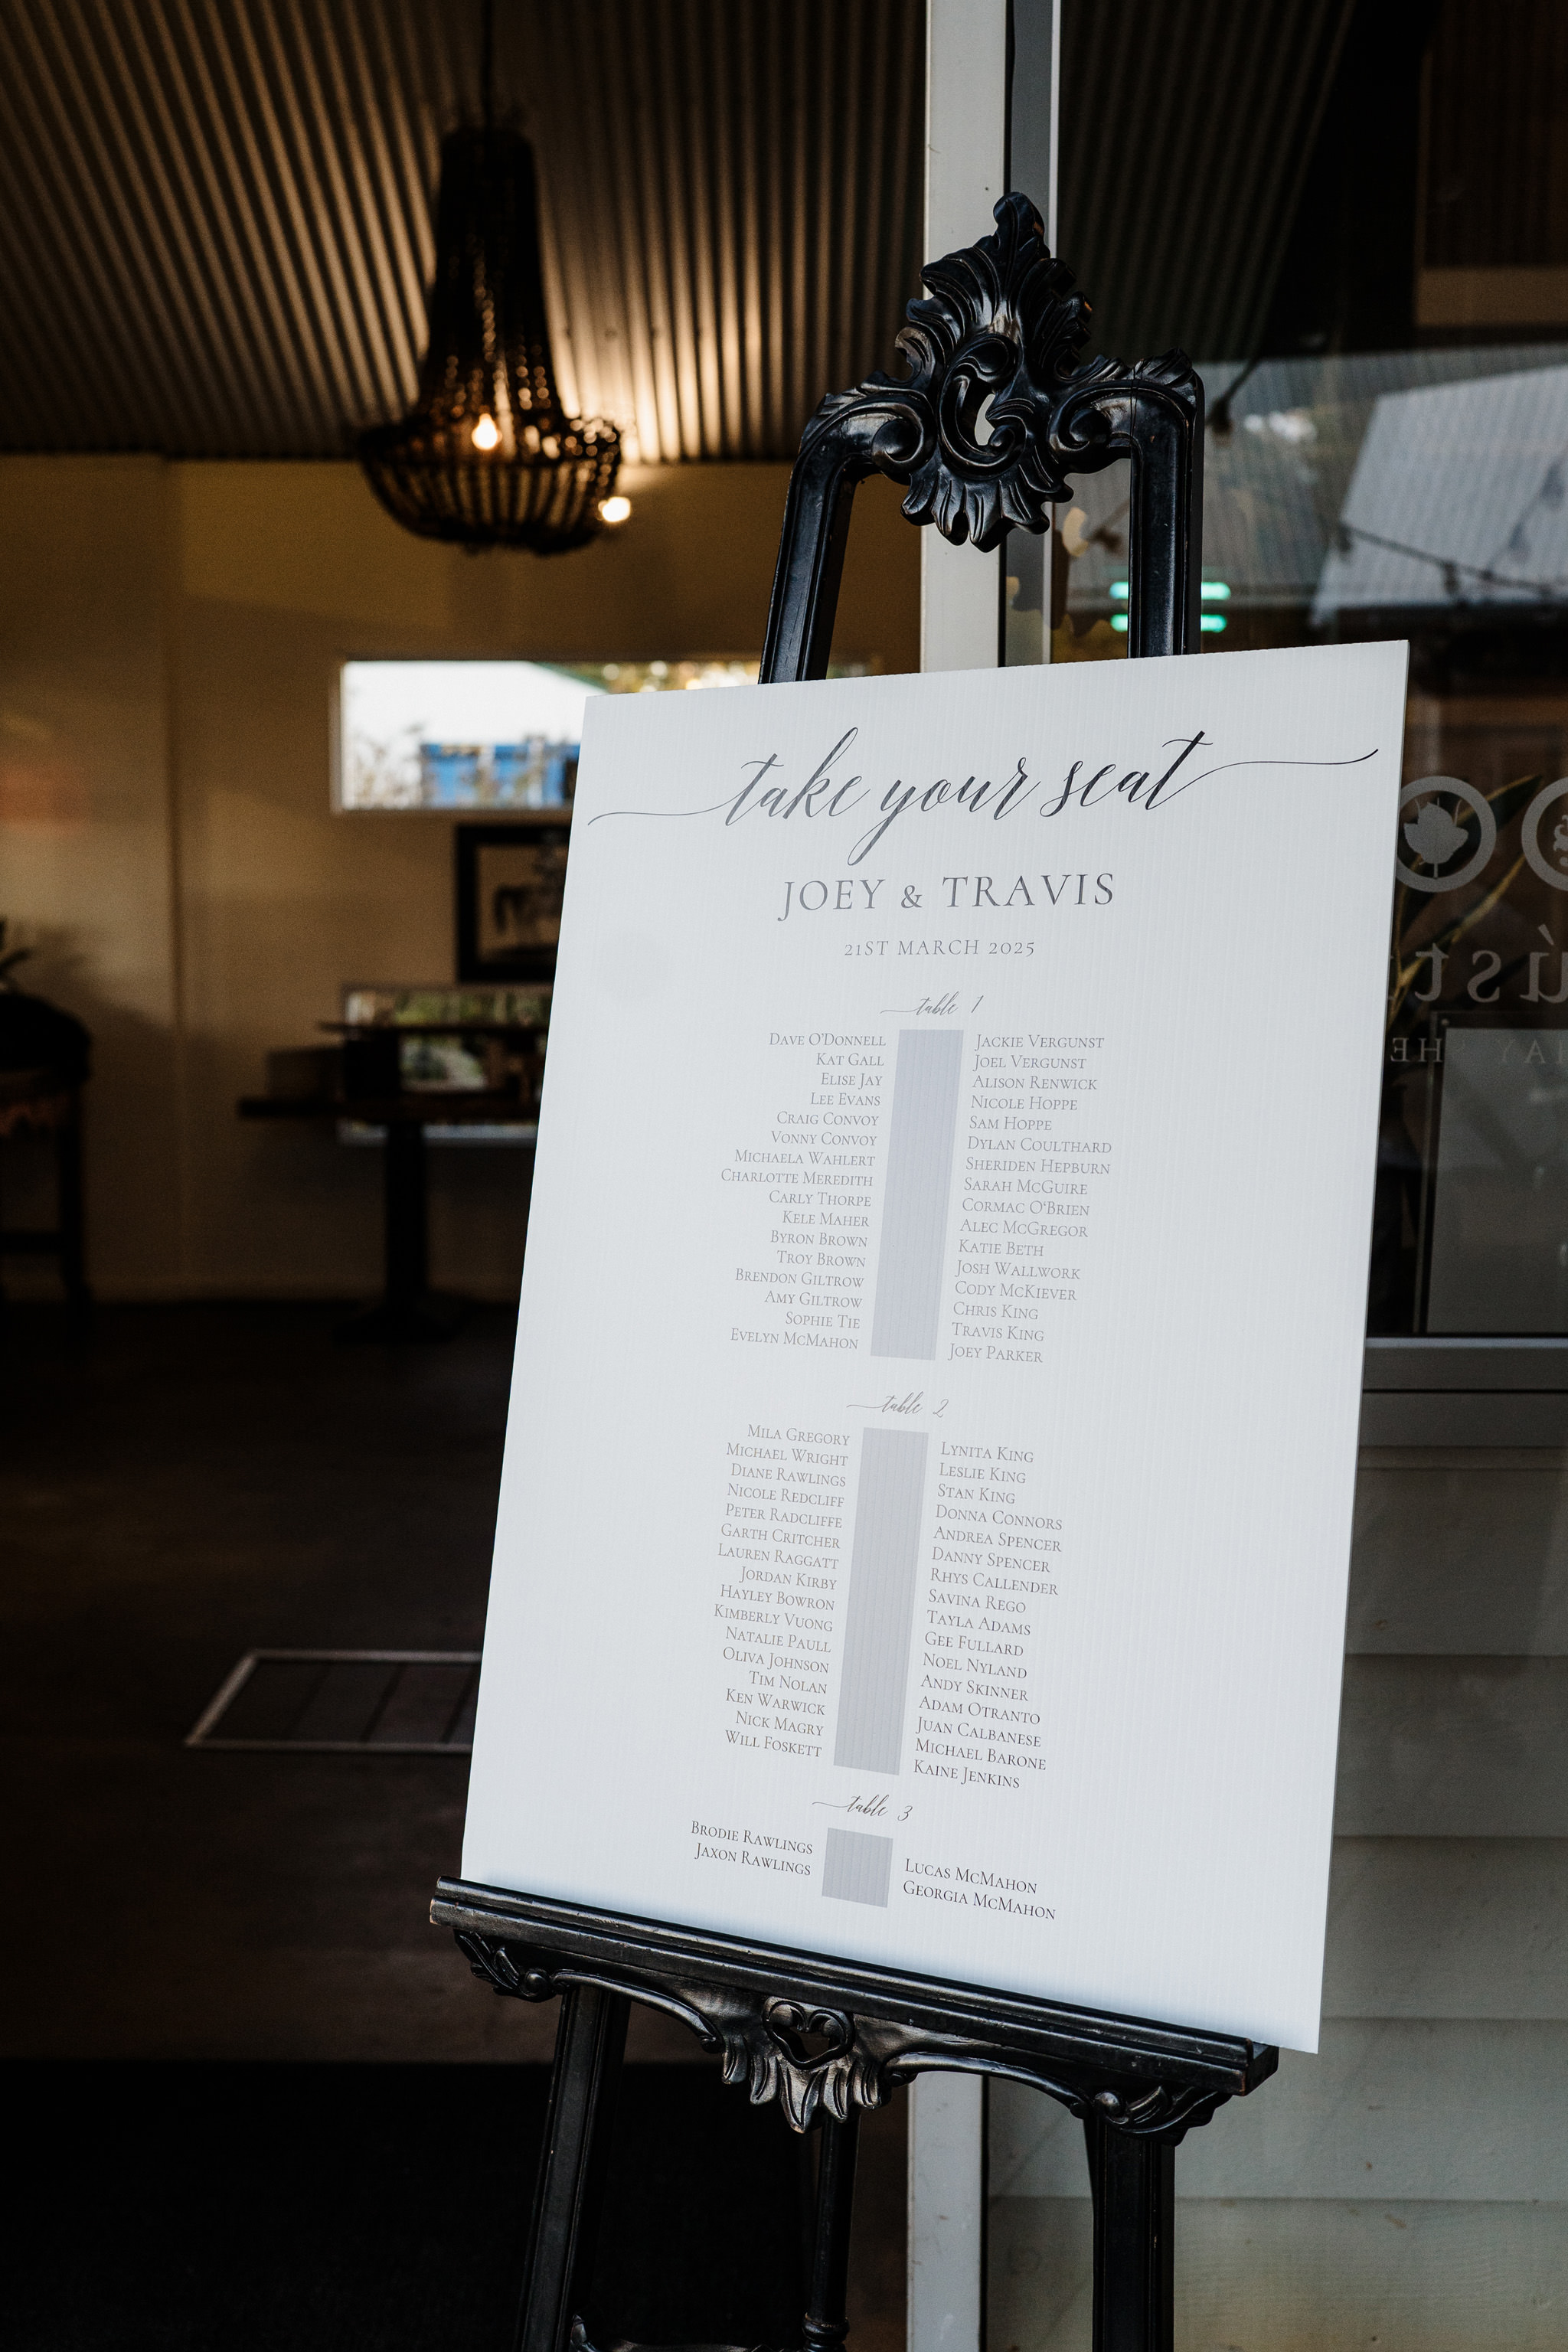 take your seat
JOEY & TRAVIS
21ST MARCH 2025
table 1
DAVE O'DONNELL
KAT GALL
ELISE JAY
LEE EVANS
CRAIG CONVOY
VONNY CONVOY
MICHAELA WAHLERT
CHARLOTTE MEREDITH
CARLY THORPE
KELE MAHER
BYRON BROWN
TROY BROWN
BRENDON GILTROW
AMY GILTROW
SOPHIE TIE
EVELYN MCMAHON
JACKIE VERGUNST
JOEL VERGUNST
ALISON RENWICK
NICOLE HOPPE
SAM HOPPE
DYLAN COULTHARD
SHERIDEN HEPBURN
SARAH MCGUIRE
CORMAC O'BRIEN
ALEC MCGREGOR
KATIE BETH
JOSH WALLWORK
CODY MCKIEVER
CHRIS KING
TRAVIS KING
JOEY PARKER
table 2
MILA GREGORY
MICHAEL WRIGHT
DIANE RAWLINGS
NICOLE REDCLIFF
PETER RADCLIFFE
GARTH CRITCHER
LAUREN RAGGATT
JORDAN KIRBY
HAYLEY BOWRON
KIMBERLY VUONG
NATALIE PAULL
OLIVA JOHNSON
TIM NOLAN
KEN WARWICK
NICK MAGRY
WILL FOSKETT
LYNITA KING
LESLIE KING
STAN KING
DONNA CONNORS
ANDREA SPENCER
DANNY SPENCER
RHYS CALLENDER
SAVINA REGO
TAYLA ADAMS
GEE FULLARD
NOEL NYLAND
ANDY SKINNER
ADAM OTRANTO
JUAN CALBANESE
MICHAEL BARONE
KAINE JENKINS
table 3
BRODIE RAWLINGS
JAXON RAWLINGS
LUCAS MCMAHON
GEORGIA MCMAHON